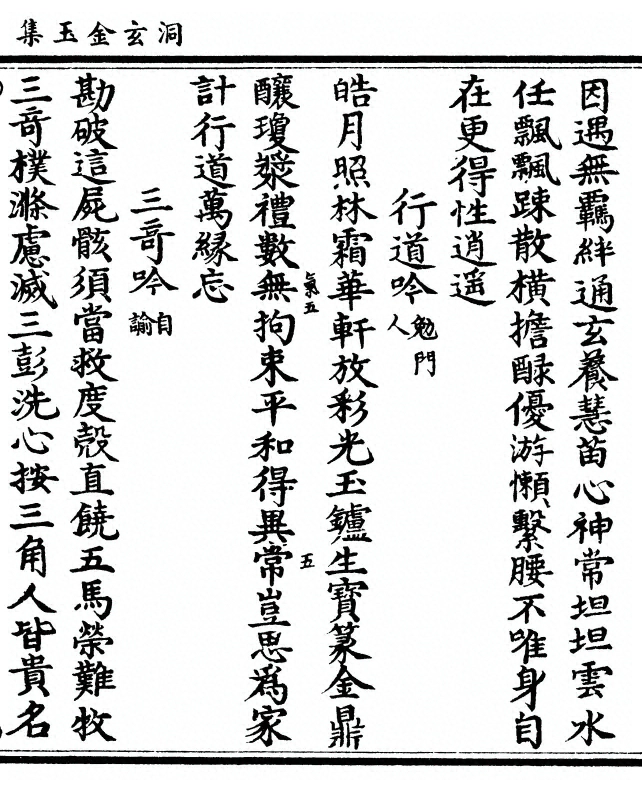 洞玄金玉集
因遇無羈絆通玄養慧苗心神常坦坦雲水
任飄飄踈散橫擔醁優游懶繫腰不唯身自
在更得性逍遥
行道吟勉門人
皓月照林霜華軒放彩光玉鑪生寶篆金鼎
釀瓊漿禮數無氣五拘束平和得異常五豈思爲家
計行道萬縁忘
三奇吟自諭
勘破這屍骸須當救度殼直饒五馬榮難牧
三奇樸滌慮滅三彭洗心按三角人皆貴名